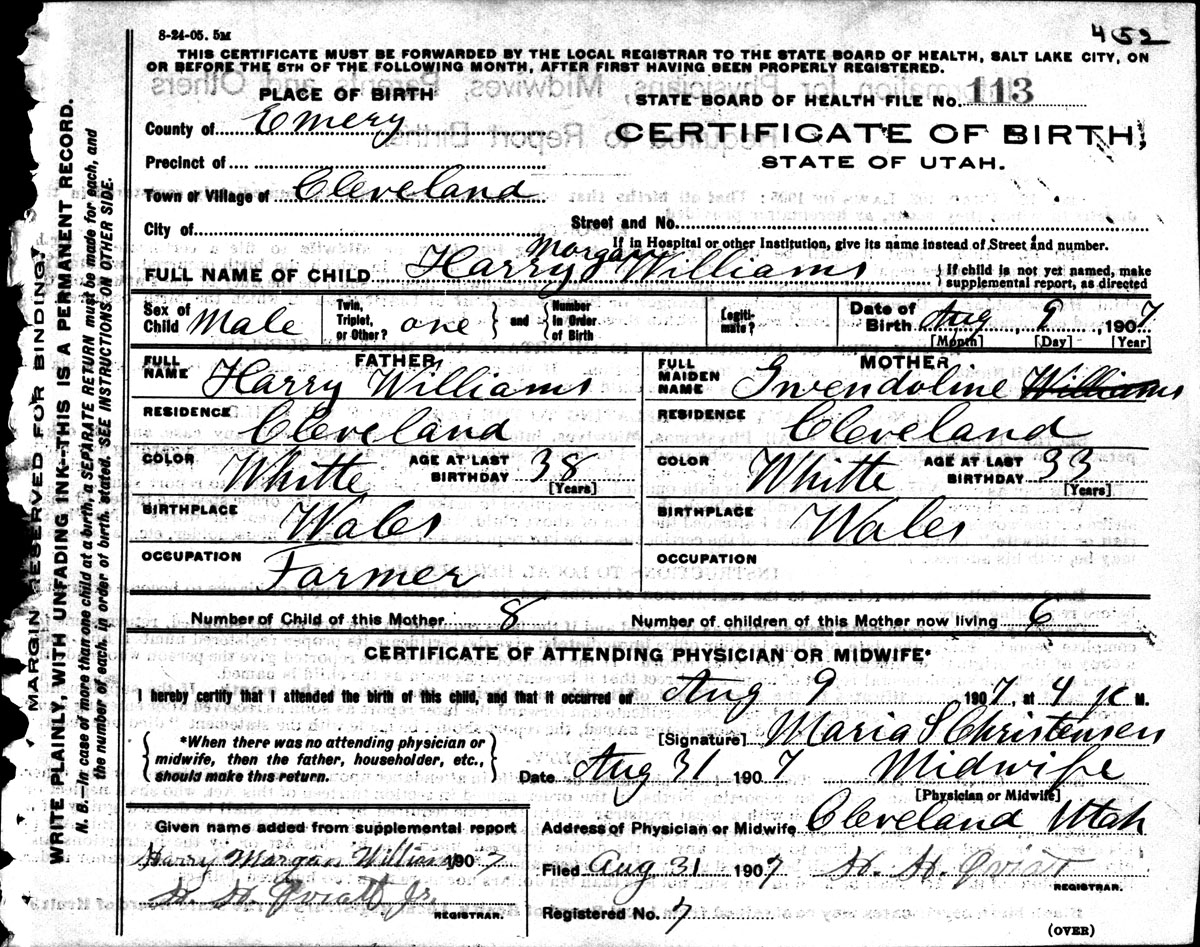 8-24-05. 5M
452
THIS CERTIFICATE MUST BE FORWARDED BY THE LOCAL REGISTRAR TO THE STATE BOARD OF HEALTH, SALT LAKE CITY, ON
OR BEFORE THE 5TH OF THE FOLLOWING MONTH, AFTER FIRST HAVING BEEN PROPERLY REGISTERED.
PLACE OF BIRTH
STATE BOARD OF HEALTH FILE No. 113
County of Emery
CERTIFICATE OF BIRTH
STATE OF UTAH.
Precinct of
Town or Village of Cleveland
Street and No.
City of
If in Hospital or other Institution, give its name instead of Street and number.
Morgan
FULL NAME OF CHILD Harry Williams
{ If child is not yet named, make
supplemental report, as directed
Sex of Child Male
Twin, Triplet, or Other? one } and { Number in Order of Birth
Legiti-mate?
Date of Birth Aug, 9, 1907
[Month] [Day] [Year]
FATHER
FULL NAME Harry Williams
MOTHER
FULL MAIDEN NAME Gwendoline Williams
RESIDENCE Cleveland
RESIDENCE Cleveland
COLOR Whitte AGE AT LAST BIRTHDAY 38 [Years]
COLOR Whitte AGE AT LAST BIRTHDAY 33 [Years]
BIRTHPLACE Wales
BIRTHPLACE Wales
OCCUPATION Farmer
OCCUPATION
Number of Child of this Mother 8 Number of children of this Mother now living 6
CERTIFICATE OF ATTENDING PHYSICIAN OR MIDWIFE*
I hereby certify that I attended the birth of this child, and that it occurred on Aug 9 1907, at 4 P M.
{ *When there was no attending physician or
midwife, then the father, householder, etc.,
should make this return. }
[Signature] Maria S Christensen
Date Aug 31 1907 Midwife
[Physician or Midwife]
Given name added from supplemental report
Address of Physician or Midwife Cleveland Utah
Harry Morgan Williams 1907
Filed Aug 31 1907 H. H. Oviatt
REGISTRAR.
H. H. Oviatt Jr.
REGISTRAR.
Registered No. 7
(OVER)
MARGIN RESERVED FOR BINDING.
WRITE PLAINLY, WITH UNFADING INK--THIS IS A PERMANENT RECORD.
N. B.—In case of more than one child at a birth, a SEPARATE RETURN must be made for each, and
the number of each, in order of birth, stated. SEE INSTRUCTIONS ON OTHER SIDE.